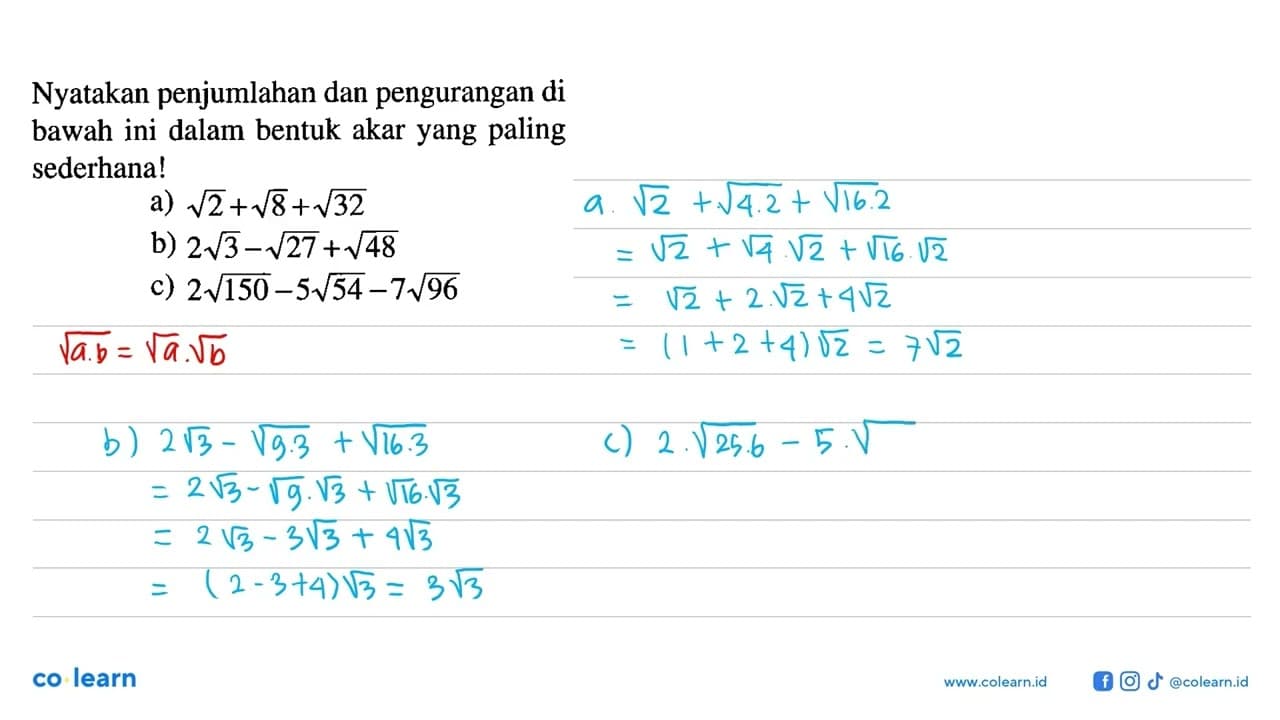 Nyatakan penjumlahan dan pengurangan di
bawah ini dalam bentuk akar yang paling
sederhana!
a) √2+√8+√32
b) 2√3−√27+√48
c) 2√150−5√54−7√96
√a.b = √a.√b
a. √2 + √4.2 + √16.2
= √2 + √4.√2 + √16.√2
= √2 + 2.√2 + 4√2
= (1 + 2 + 4)√2 = 7√2
b) 2√3 − √9.3 + √16.3
= 2√3 − √9.√3 + √16.√3
= 2√3 − 3√3 + 4√3
= (2 - 3 + 4)√3 = 3√3
c) 2.√25.6 − 5.√
co·learn
www.colearn.id
@colearn.id